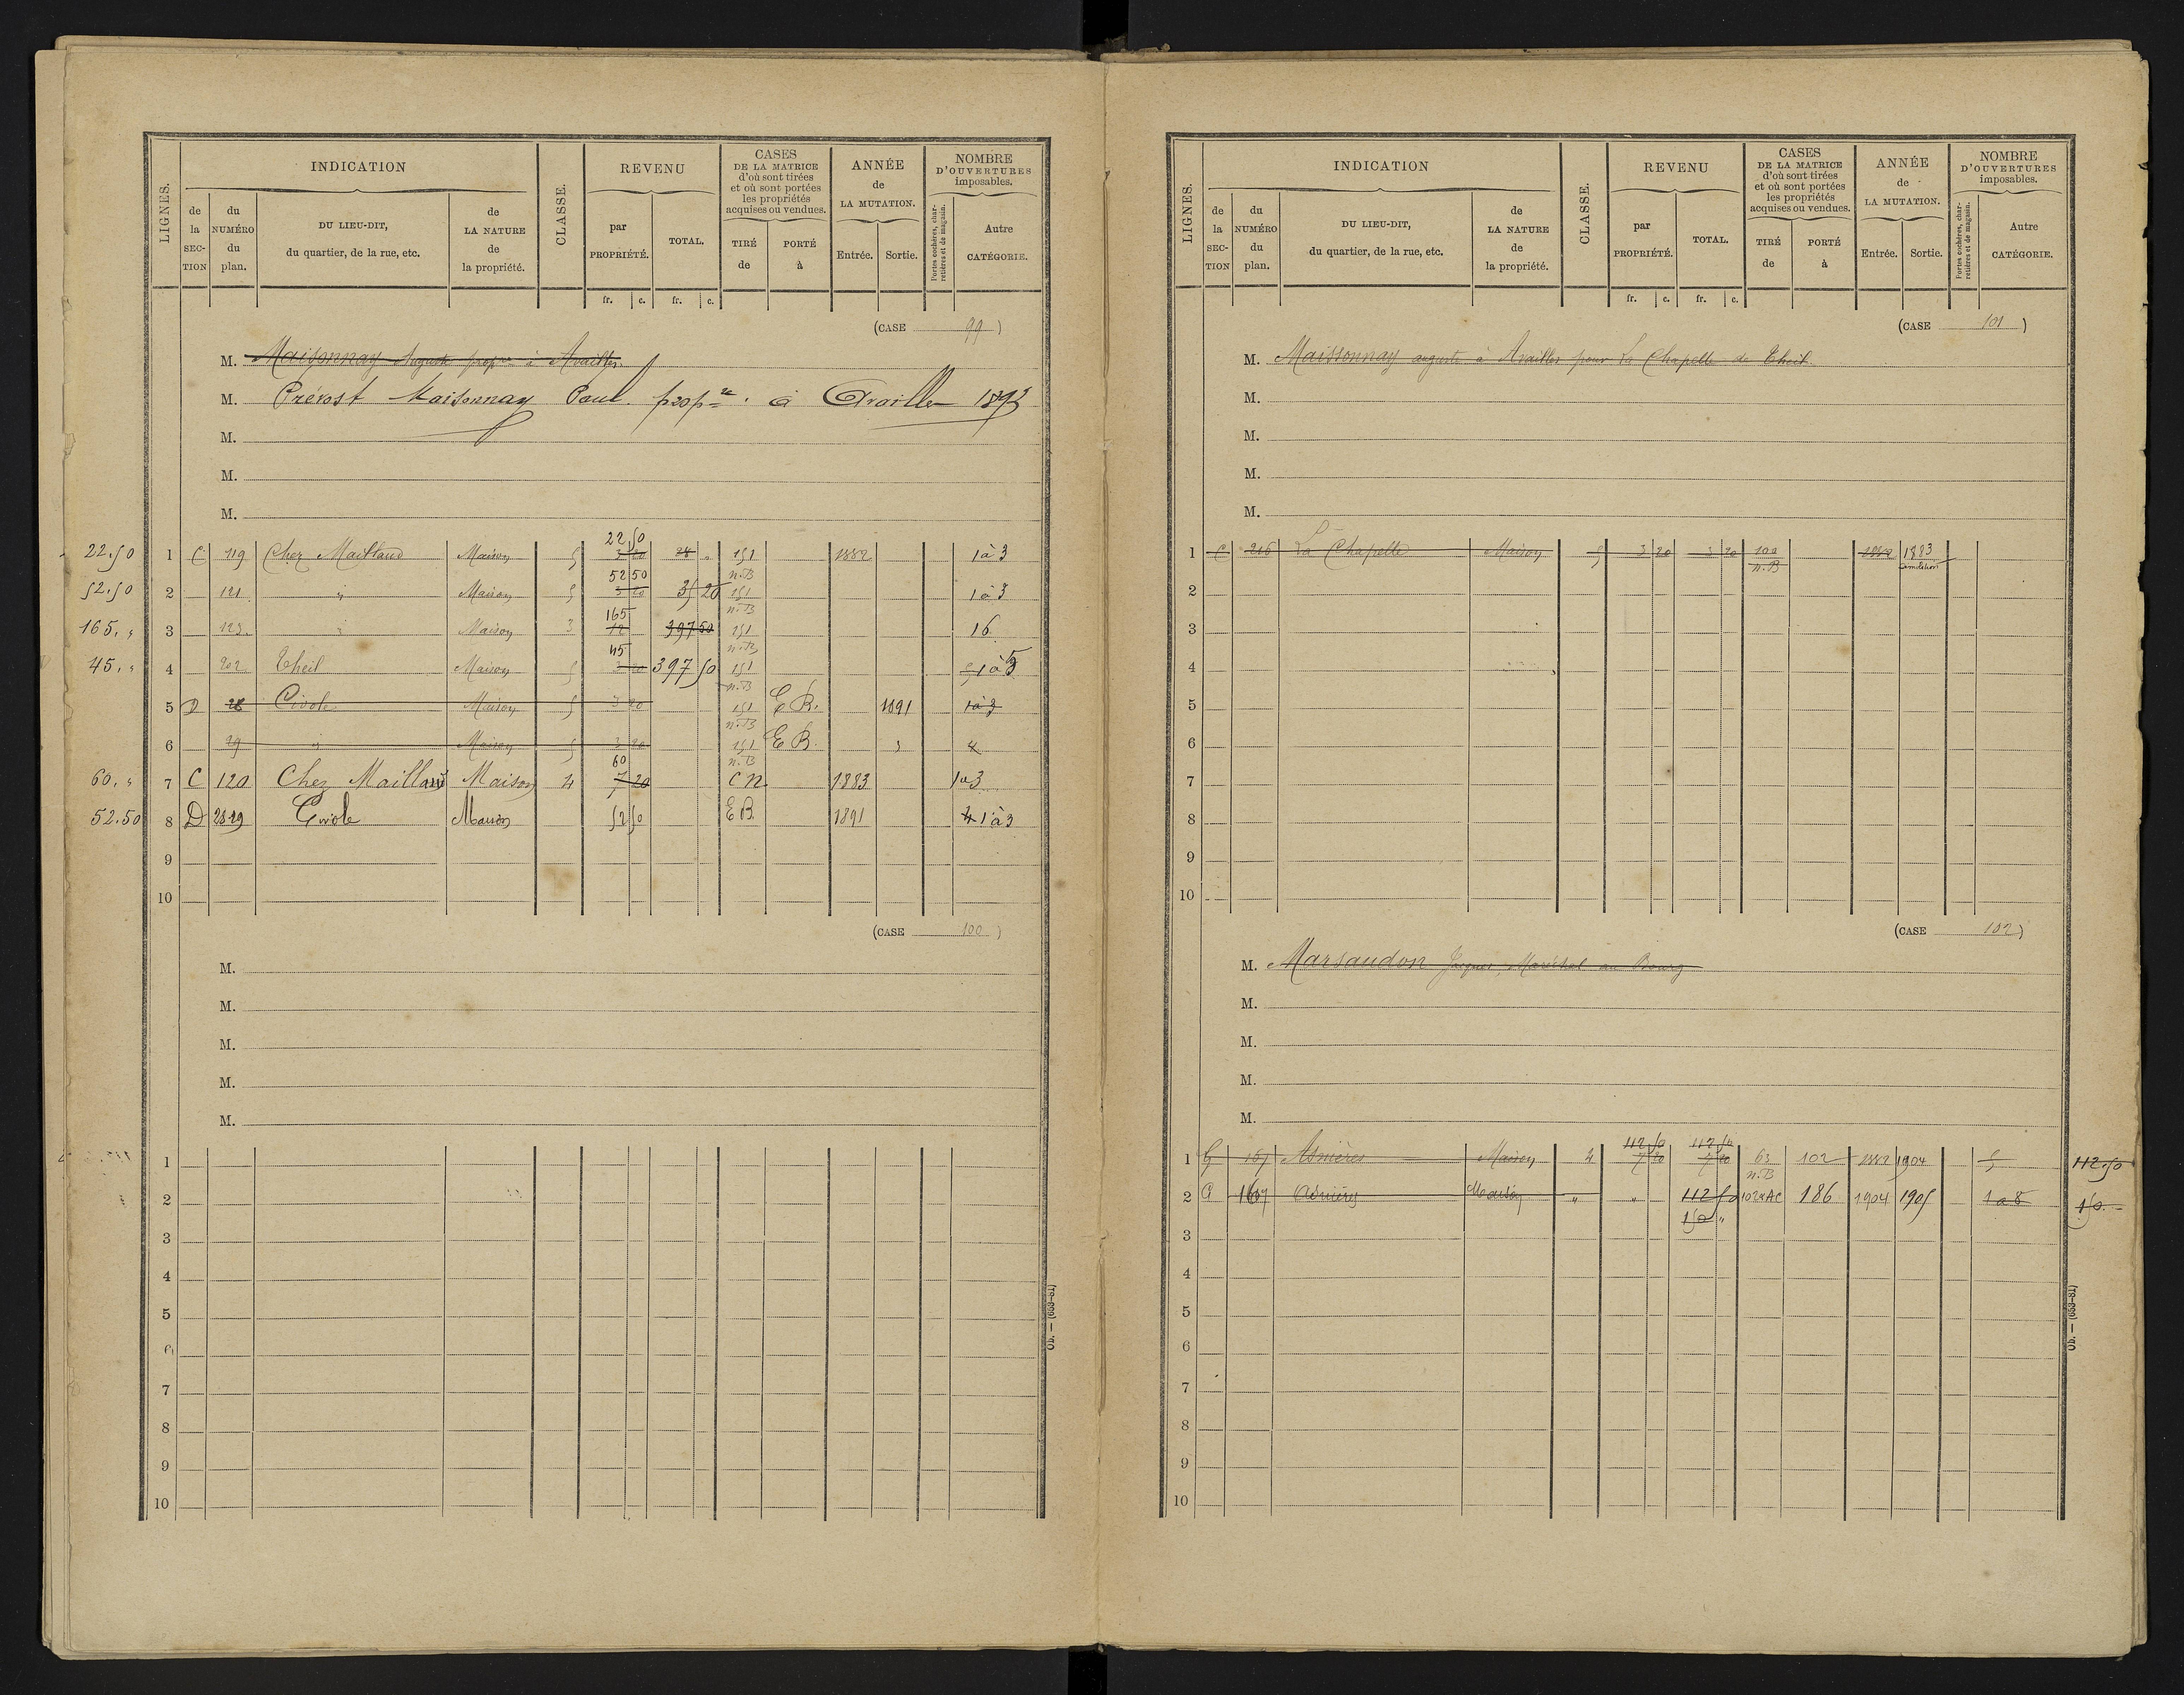 INDICATION CLASSE. REVENU CASES DE LA MATRICE d'où sont tirées et où sont portées les propriétés acquises ou vendues. ANNÉE de LA MUTATION. NOMBRE D'OUVERTURES imposables.
LIGNES. de la SEC-TION du NUMÉRO du plan. DU LIEU-DIT, du quartier, de la rue, etc. de LA NATURE de la propriété. par PROPRIÉTÉ. TOTAL. TIRÉ de PORTÉ à Entrée. Sortie. Portes cochères, charretières et de magasin. Autre CATÉGORIE.
fr. c. fr. c.
(CASE 99)
M. Maisonnay Auguste propre à Availles
M. Prévost Maisonnay Paul. propre à Availles 1893
M.
M.
M.
22 50
22.50 1 C 119 Chez Maillaud Maison 5 3 20 28 " 151 n.B 1882 1 à 3
52 50
52.50 2 121 " Maison 5 3 20 35 20 151 n.B 1 à 3
165
165. " 3 123 " Maison 3 12 397 50 151 n.B 16
45
45. " 4 202 Theil Maison 5 3 20 397 50 151 n.B 1 à 5
5 D 28 Civole Maison 5 3 20 151 n.B E B. 1891 1 à 3
6 29 " Maison 5 3 20 151 n.B E B. " 4
60
60. " 7 C 120 Chez Maillaud Maison 4 7 20 C N 1883 1 à 3
52.50 8 D 28 29 Civole Maison 52 50 E B. 1891 4 1 à 3
9
10
(CASE 100)
M.
M.
M.
M.
M.
1
2
3
4
5
6
7
8
9
10
Ob. — (653-81)
INDICATION CLASSE. REVENU CASES DE LA MATRICE d'où sont tirées et où sont portées les propriétés acquises ou vendues. ANNÉE de LA MUTATION. NOMBRE D'OUVERTURES imposables.
LIGNES. de la SEC-TION du NUMÉRO du plan. DU LIEU-DIT, du quartier, de la rue, etc. de LA NATURE de la propriété. par PROPRIÉTÉ. TOTAL. TIRÉ de PORTÉ à Entrée. Sortie. Portes cochères, charretières et de magasin. Autre CATÉGORIE.
fr. c. fr. c.
(CASE 101)
M. Maissonnay auguste à Availles pour La Chapelle de Theil
M.
M.
M.
M.
1 C 216 La Chapelle Maison 5 3 20 3 20 100 n.B 1882 1883 démolition
2
3
4
5
6
7
8
9
10
(CASE 102)
M. Marsaudon Jacques, Maréchal au Bourg
M.
M.
M.
M.
112 50 112 50
1 G 167 Asnières Maison 4 7 20 7 20 63 n.B 102 1882 1904 5 112.50
2 G 167 Asnières Maison " " 112 50 102 n AC 186 1904 1905 1 à 8 150. -
150 "
3
4
5
6
7
8
9
10
Ob. — (653-81)